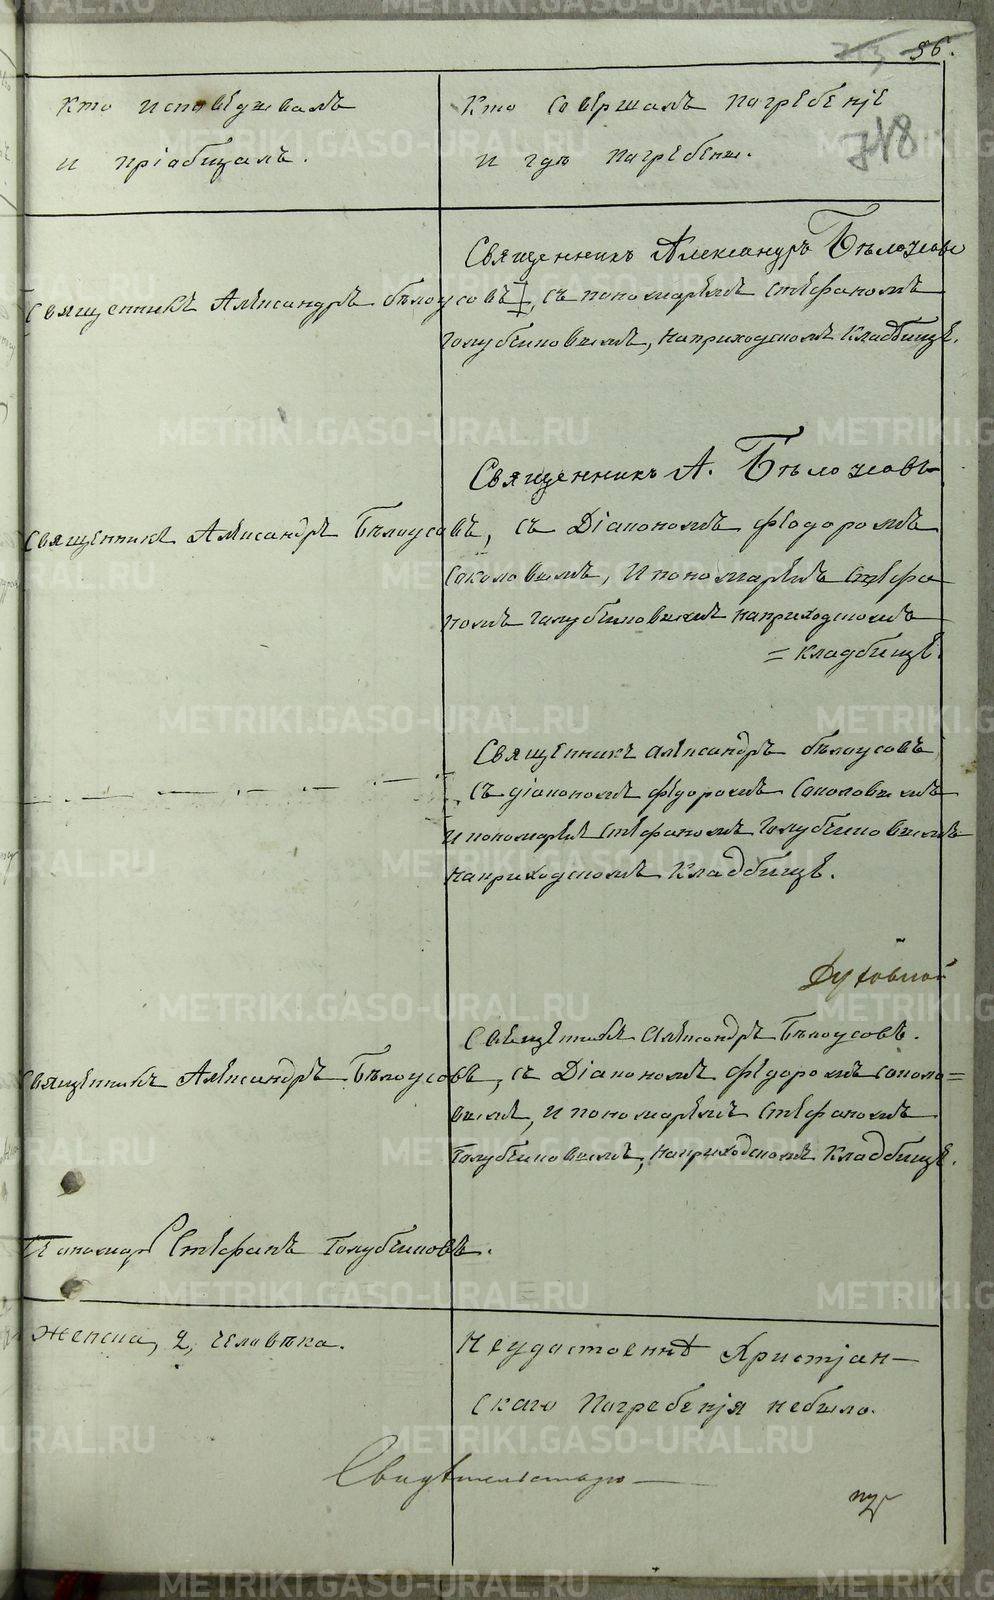 56.
Кто исповѣдывалъ
и пріобщалъ.
Кто совершалъ погребеніе
и гдѣ погребены.
748
Священникъ Александръ Бѣлоусовъ
Священникъ Александръ Бѣлоусовъ, съ пономаремъ Стефаномъ
Голубчиковымъ, наприходскомъ кладбищѣ.
Священникъ А. Бѣлоусовъ
Священникъ Александръ Бѣлоусовъ, съ Діакономъ Феодоромъ
Соколовымъ, и пономаремъ Стефа
номъ Голубчиковымъ наприходскомъ
= кладбищѣ.
Священникъ Александръ Бѣлоусовъ
съ діакономъ Федоромъ Соколовымъ
и пономаремъ Стефаномъ Голубчиковымъ
наприходскомъ кладбищѣ.
Духовной
Священникъ Александръ Бѣлоусовъ.
Священникъ Александръ Бѣлоусовъ, съ Діакономъ Федоромъ Соколо=
вымъ, и пономаремъ Стефаномъ
Голубчиковымъ, наприходскомъ кладбищѣ.
Пономарь Стефанъ Голубчиковъ.
Женска, 2, человѣка.
Неудостоенныхъ Христіан-
скаго погребенія небыло.
Свидѣтельствую
METRIKI.GASO-URAL.RU